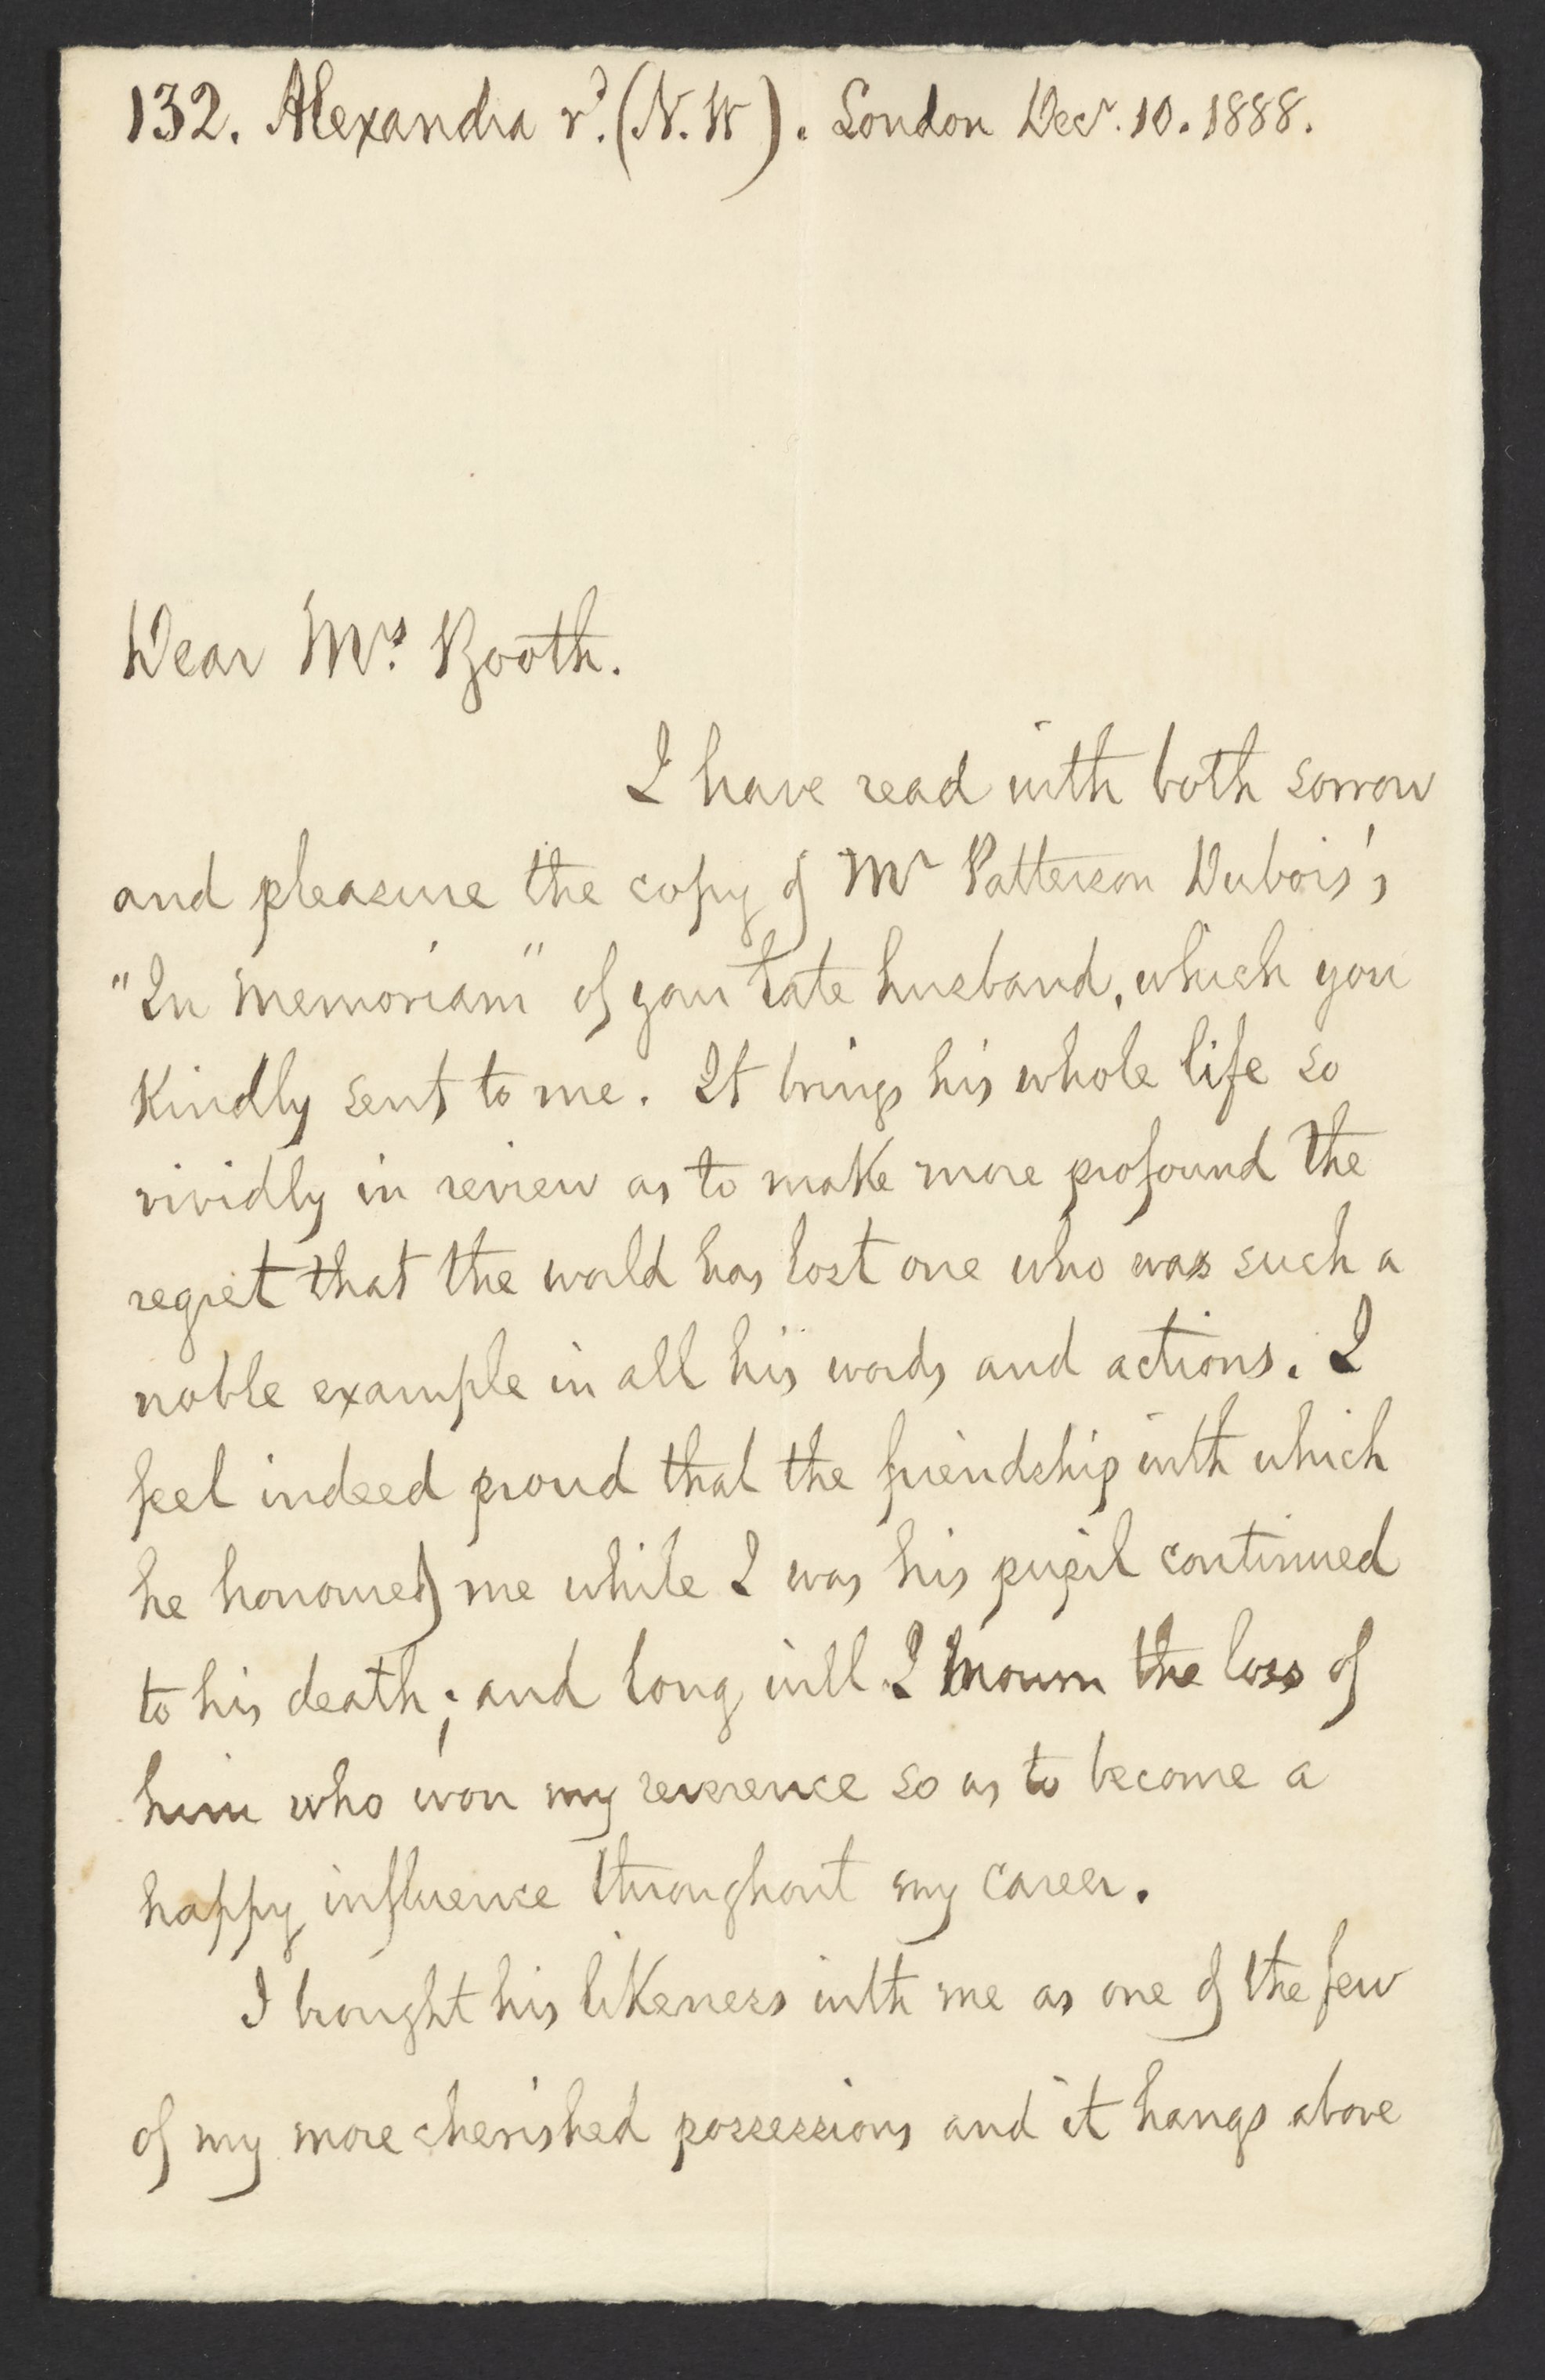 132. Alexandra rd. (N.W). London Decr. 10. 1888.
Dear Mrs. Booth.
I have read with both sorrow
and pleasure the copy of Mr Patterson Dubois's
"In Memoriam" of your late husband, which you
Kindly sent to me. It brings his whole life so
vividly in review as to make more profound the
regret that the world has lost one who was such a
noble example in all his words and actions. I
feel indeed proud that the friendship with which
he honoured me while I was his pupil continued
to his death; and long will I mourn the loss of
him who won my reverence so as to become a
happy influence throughout my career.
I brought his likeness with me as one of the few
of my more cherished possessions and it hangs above